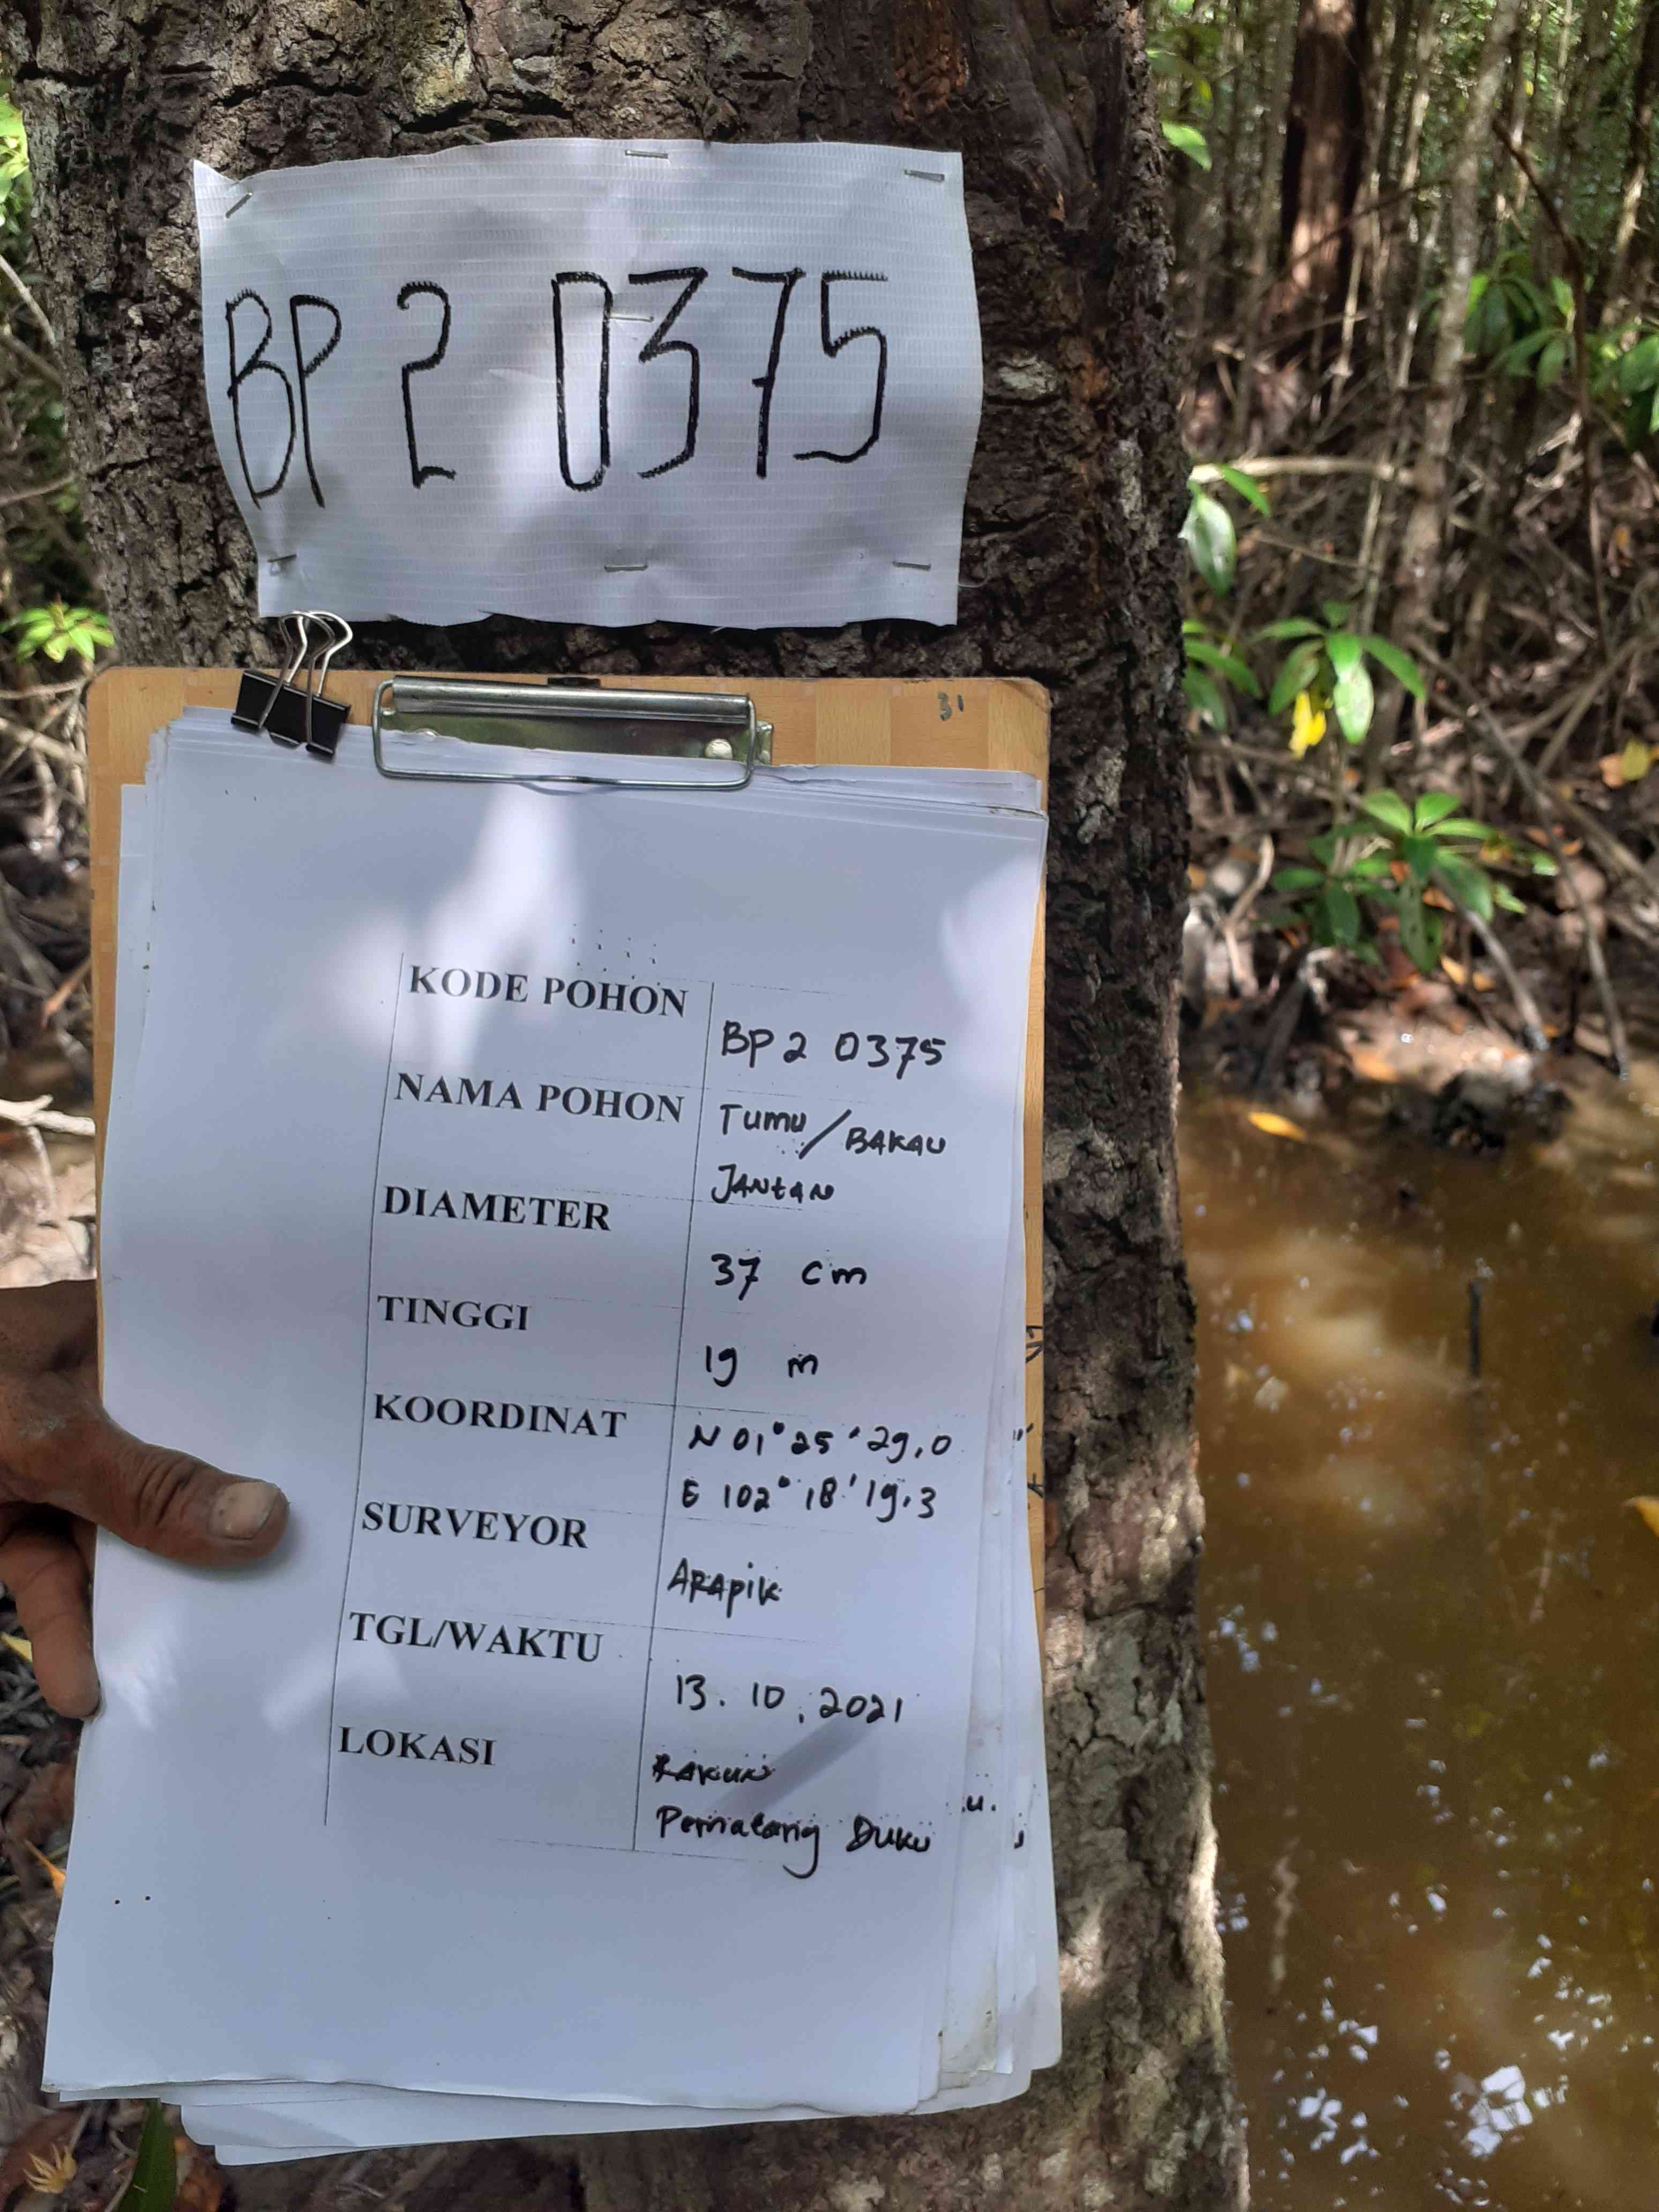 BP 2 0375
31
KODE POHON BP2 0375
NAMA POHON Tumu/BAKAU
JANtAN
DIAMETER 37 cm
TINGGI 19 m
KOORDINAT N 01° 25 ' 29,0
E 102° 18' 19,3
SURVEYOR ARApik
TGL/WAKTU 13. 10. 2021
LOKASI RAKUN
Pematang Duku